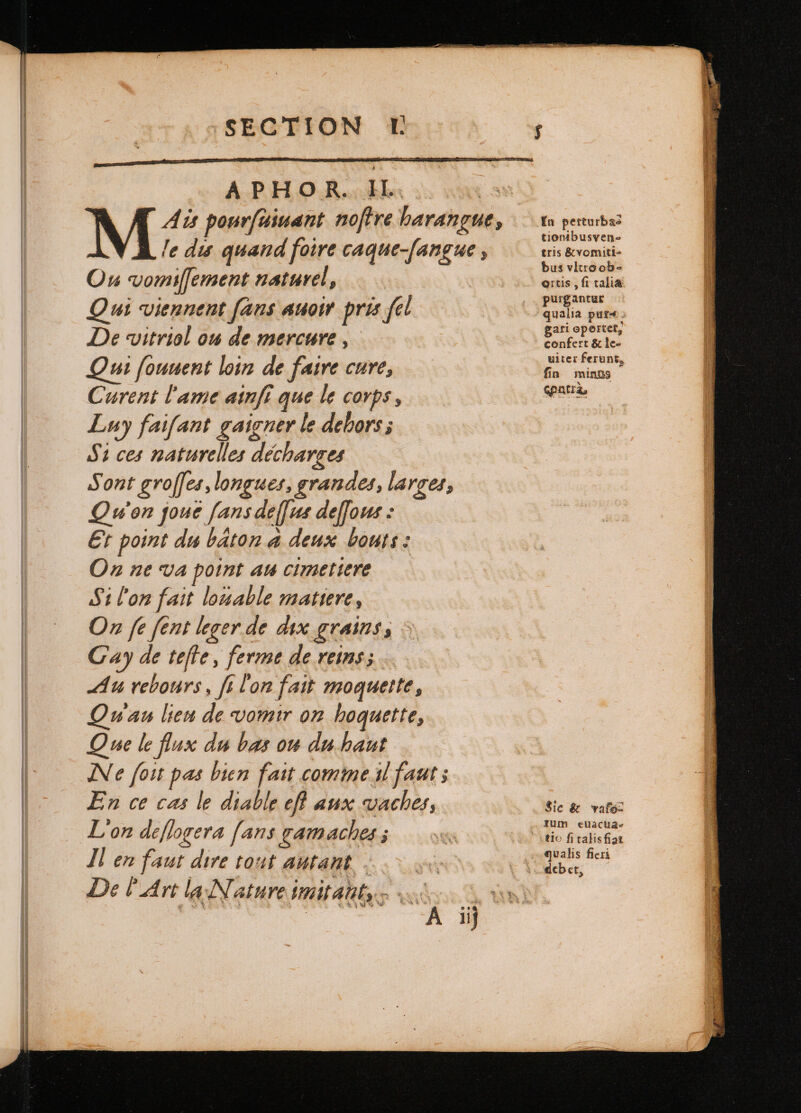 SECTION I.
5
APHOR. II.
MAis pourſuiuant noſtre harangue,
Ie dis quand foire caque-ſangue,
Ou vomiſſement naturel,
Qui viennent ſans auoir pris ſel
De vitriol ou de mercure,
Qui ſouuent loin de faire cure,
Curent l'ame ainſi que le corps,
Luy faiſant gaigner le dehors;
Si ces naturelles décharges
Sont groſſes, longues, grandes, larges,
Qu'on joue ſans deſſus deſſous:
Et point du bâton à deux bouts:
On ne va point au cimetiere
Si l'on fait loüable matiere,
On ſe ſent leger de dix grains,
Gay de teſte, ferme de reins;
Au rebours, ſi l'on fait moquette,
Qu'au lieu de vomir on hoquette,
Que le flux du bas ou du haut
Ne ſoit pas bien fait comme il faut;
En ce cas le diable eſt aux vaches,
L'on deſlogera ſans gamaches;
Il en faut dire tout autant
De l'Art la Nature imitant,
A iij
In perturba-
tionibus ven-
tris & vomiti-
bus vltro ob-
ortis, ſi talia
purgantur
qualia pur-
gari oportet,
confert & le-
uiter ferunt,
ſin minus
contrà,
Sic & vaſo-
rum euacua-
tio ſi talis fiat
qualis fieri
debet,